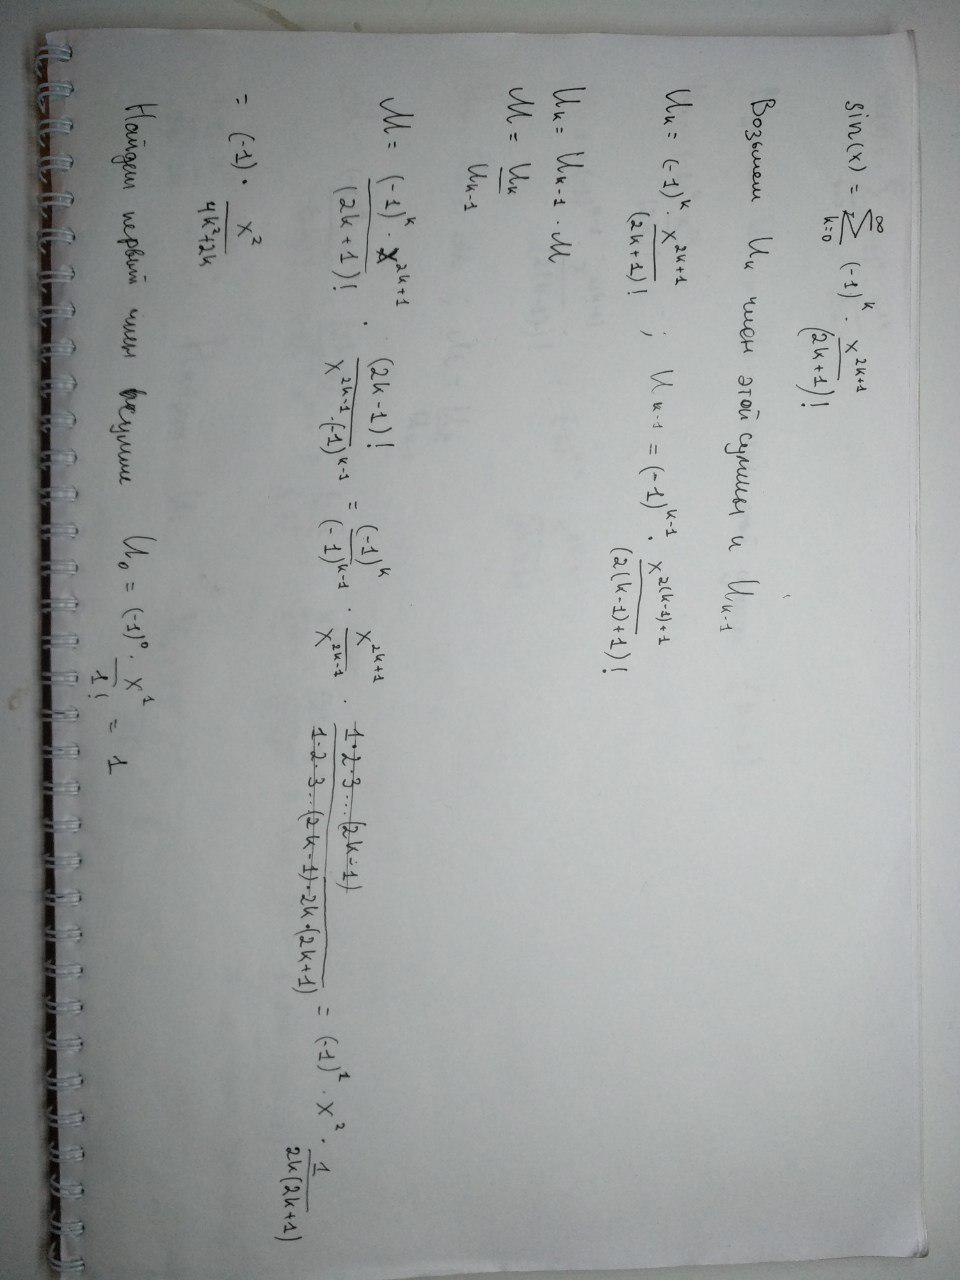 sin(x) = ∑_{k=0}^{∞} (-1)^k · x^{2k+1} / (2k+1)!
Возьмем U_k член этой суммы и U_{k-1}
U_k = (-1)^k · x^{2k+1} / (2k+1)! ; U_{k-1} = (-1)^{k-1} · x^{2(k-1)+1} / (2(k-1)+1)!
U_k = U_{k-1} · M
M = U_k / U_{k-1}
M = (-1)^k · x^{2k+1} / (2k+1)! · (2k-1)! / x^{2k-1}·(-1)^{k-1} = (-1)^k / (-1)^{k-1} · x^{2k+1} / x^{2k-1} · 1·2·3...(2k-1) / 1·2·3...(2k-1)·2k·(2k+1) = (-1)^1 · x^2 · 1 / 2k(2k+1)
= (-1) · x^2 / 4k^2+2k
Найдем первый член в сумме U_0 = (-1)^0 · x^1 / 1! = 1